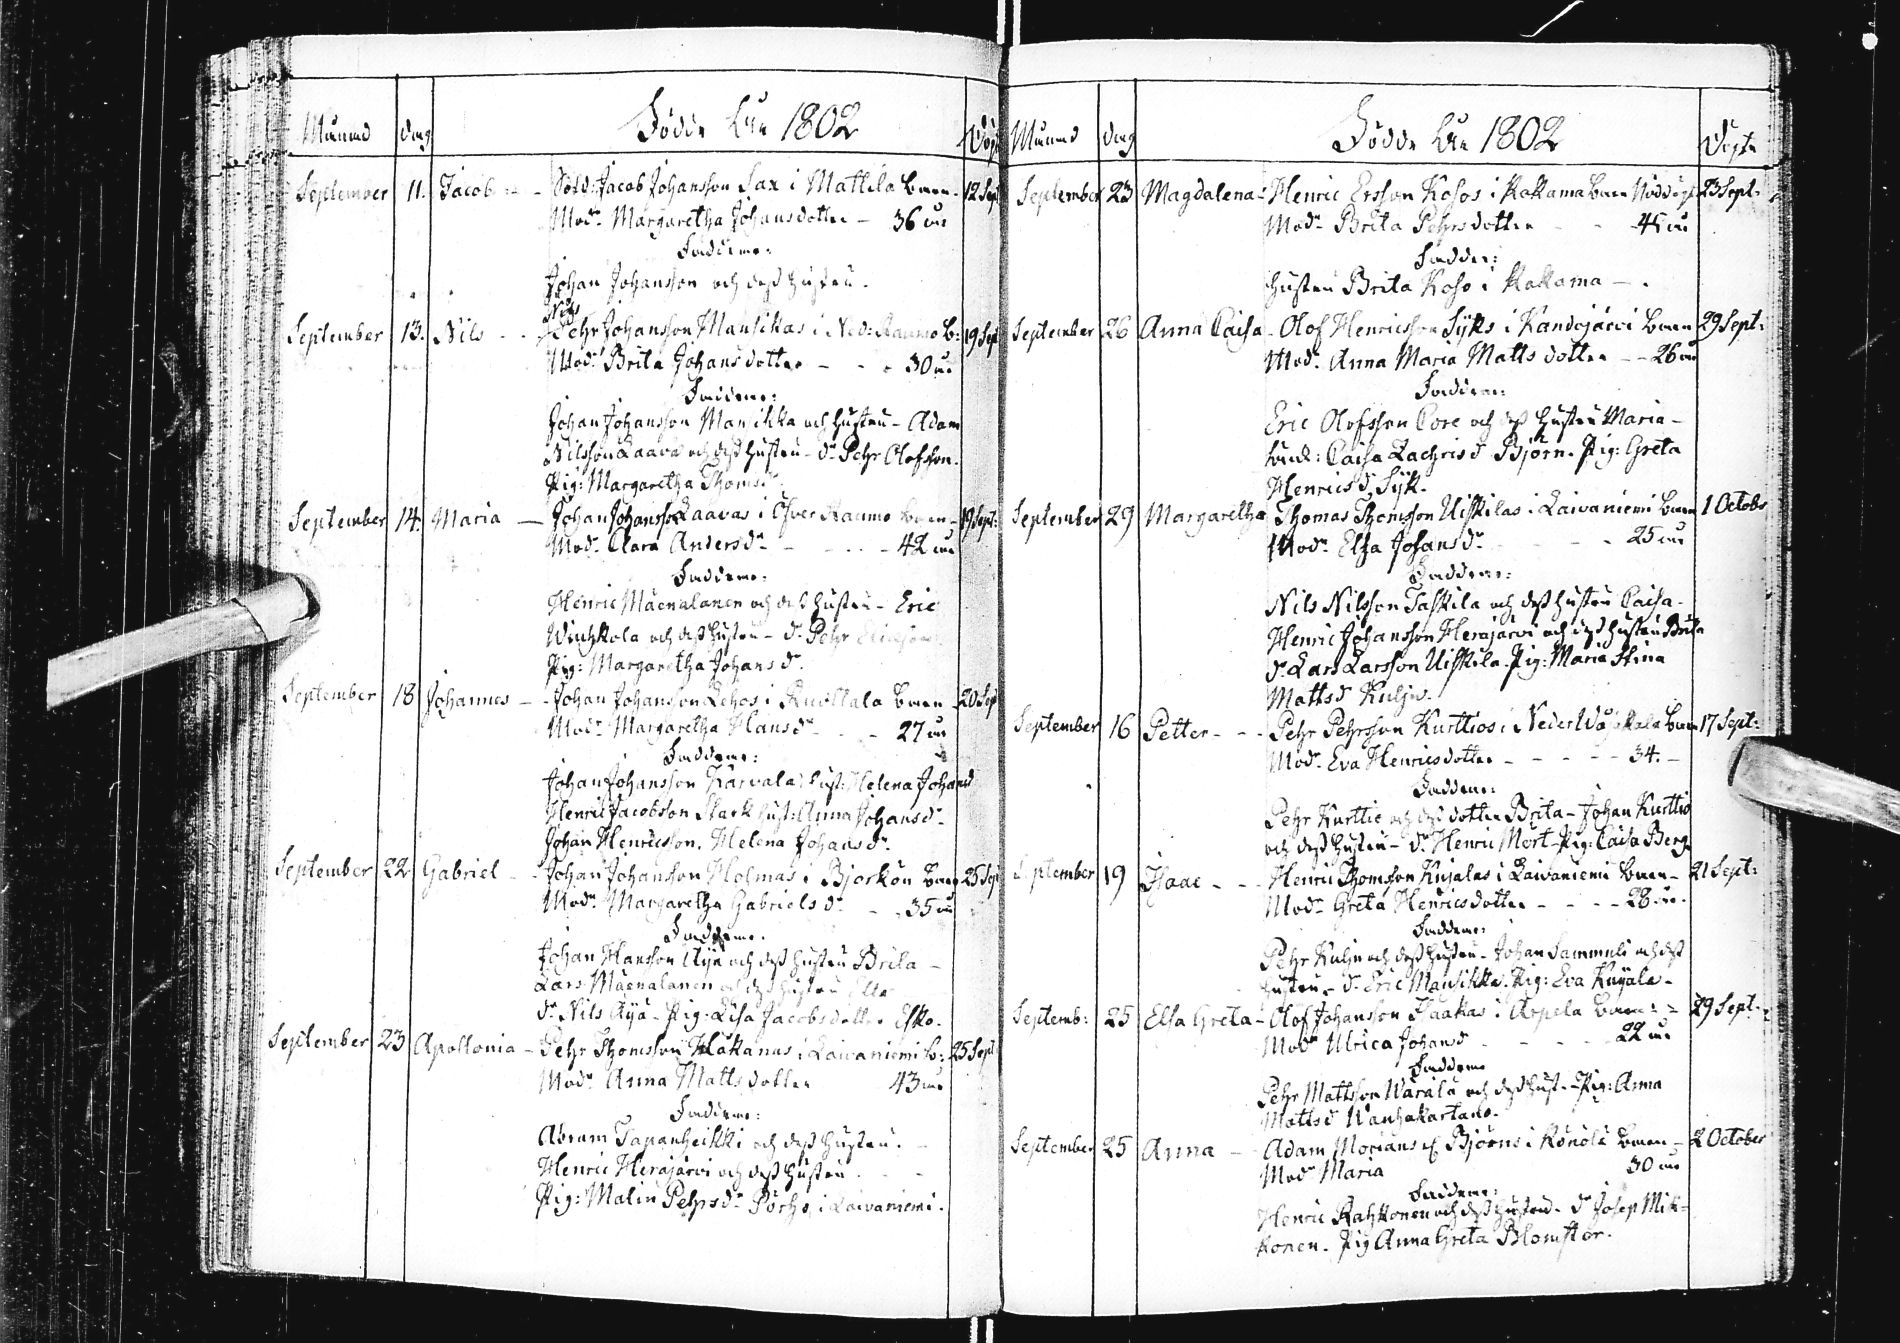 Månad dag Födde År 1802 Döpt
September 11. Jacob Sold: Jacob Johansson Sax i Mattila Barn 12 Sept
Modr Margaretha Johansdotter 36 år
Faddrar:
Johan Johansson och dess hustru.
Nils
September 13. Nils Pehr Johansson Mansikas i Ned: Raumo B: 19 Sept
Modr Brita Johansdotter 30 år
Faddrar:
Johan Johansson Mansikka och hustru Adam
Nilsson Laava och dess hustru dr Pehr Olofsson.
Pig: Margaretha Thomsdr
September 14. Maria Johan Johansson Laavas i Öfver Raumo Barn 19 Sept:
Modr Clara Andersdr 42 år
Faddrar:
Henric Mäenalanen och dess hustru Eric
och dess hustru dr Pehr
Pig: Margaretha Johansdr.
September 18 Johannes Johan Johansson Lehos i Ruottala Barn 20 Sept
Modr Margaretha Hansdr 27 år
Faddrar:
Johan Johansson Karvala hust: Helena Johansd
Henric Jacobsson Stark hust: Anna Johansdr
Johan Henricsson. Helena Johansdr.
September 22 Gabriel Johan Johansson Holmas i Björkön Barn 25 Sept
Modr Margaretha Gabrielsdr 35 år
Faddrar.
Johan Hansson Äijä och dess hustru Brita
Lars Mäenalanen och dess hustru
dr Nils Äijä Pig: Lisa Jacobsdotter Esko.
September 23 Apollonia Pehr Thomsson Hakanus i Laivaniemi B: 25 Sept
Modr Anna Mattsdotter 43 år
Faddrar:
Abram Tapanheikki och dess hustru.
Henric Herajärvi och dess hustru
Pig: Malin Pehrsdr Pörhö i Laivaniemi.
Månad dag Födde År 1802 Döpte
September 23 Magdalena Henric Ersson Kosos i Kakama Barn Nöddöpt 23 Sept:
Modr Brita Pehrsdotter 45 år
Fadder:
hustru Brita Koso i Kakama
September 26 Anna Caisa Olof Henricsson Syks i Kandojärvi Barn 29 Sept:
Modr Anna Maria Mattsdotter 26 år
Faddrar:
Eric Olofsson Pore och dess hustru Maria
Caisa Zachrisd Björn. Pig: Greta
Henricsd Syk.
September 29 Margaretha Thomas Thomsson Uiskilas i Laivaniemi Barn 1 Octobr
Modr Elsa Johansdr 25 år
Faddrar:
Nils Nilsson Taskila och dess hustru Caisa
Henric Johansson Herajärvi och dess hustru Brita
dr Lars Larsson Uiskila. Pig: Maria Stina
Mattsd Kuljo.
September 16 Petter Pehr Pehrsson Kurttios i Neder Barn 17 Sept:
Modr Eva Henricsdotter 34.
Faddrar:
Pehr Kurttio och dess dotter Brita Johan Kurttio
och dess hustru dr Henric Mört Pig: Caisa Berg
September 19 Isaac Henric Thomsson Kujalas i Laivaniemi Barn 21 Sept:
Modr Greta Henricsdotter 28 år.
Faddrar:
Pehr Kuljo och dess hustru Johan Sammuli och dess
hustru dr Eric Mansikka. Pig: Eva Kujala
Septemb: 25 Elsa Greta Olof Johansson Isaakas i Arpela Barn 29 Sept:
Modr Ulrica Johansd 22 år
Faddrar
Pehr Mattsson Warala och dess hust. Pig: Anna
Mattsd Wanhakartano.
September 25 Anna Adam Morians el Björns i Könölä Barn 2 October
Modr Maria 30 år
Faddrar:
Henric Rahkonen och dess hustru dr Josep Mik-
konen. Pig Anna Greta Blomster.